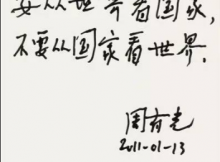 要从世界看国家，
不要从国家看世界．
周有光
2011-01-13